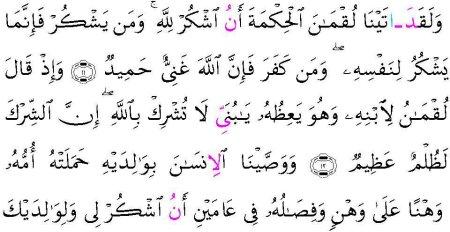 وَلَقَدَ اٰتَيْنَا لُقْمَٰنَ اَ۬لْحِكْمَةَ أَنُ اُ۟شْكُرْ لِلهِۖ وَمَن يَشْكُرْ فَإِنَّمَا
يَشْكُرُ لِنَفْسِهِۦۖ وَمَن كَفَرَ فَإِنَّ اَ۬للَّهَ غَنِيٌّ حَمِيدٞۖ ۝١١ وَإِذْ قَالَ
لُقْمَٰنُ لِابْنِهِۦ وَهُوَ يَعِظُهُۥ يَٰبُنَيِّ لَا تُشْرِكْ بِاللَّهِۖ إِنَّ اَ۬لشِّرْكَ
لَظُلْمٌ عَظِيمٞۖ ۝١٢ وَوَصَّيْنَا اَ۬لِانسَٰنَ بِوَٰلِدَيْهِ حَمَلَتْهُ أُمُّهُۥ
وَهْناً عَلَىٰ وَهْنٖ وَفِصَٰلُهُۥ فِي عَامَيْنِ أَنُ اُ۟شْكُرْ لِي وَلِوَٰلِدَيْكَ